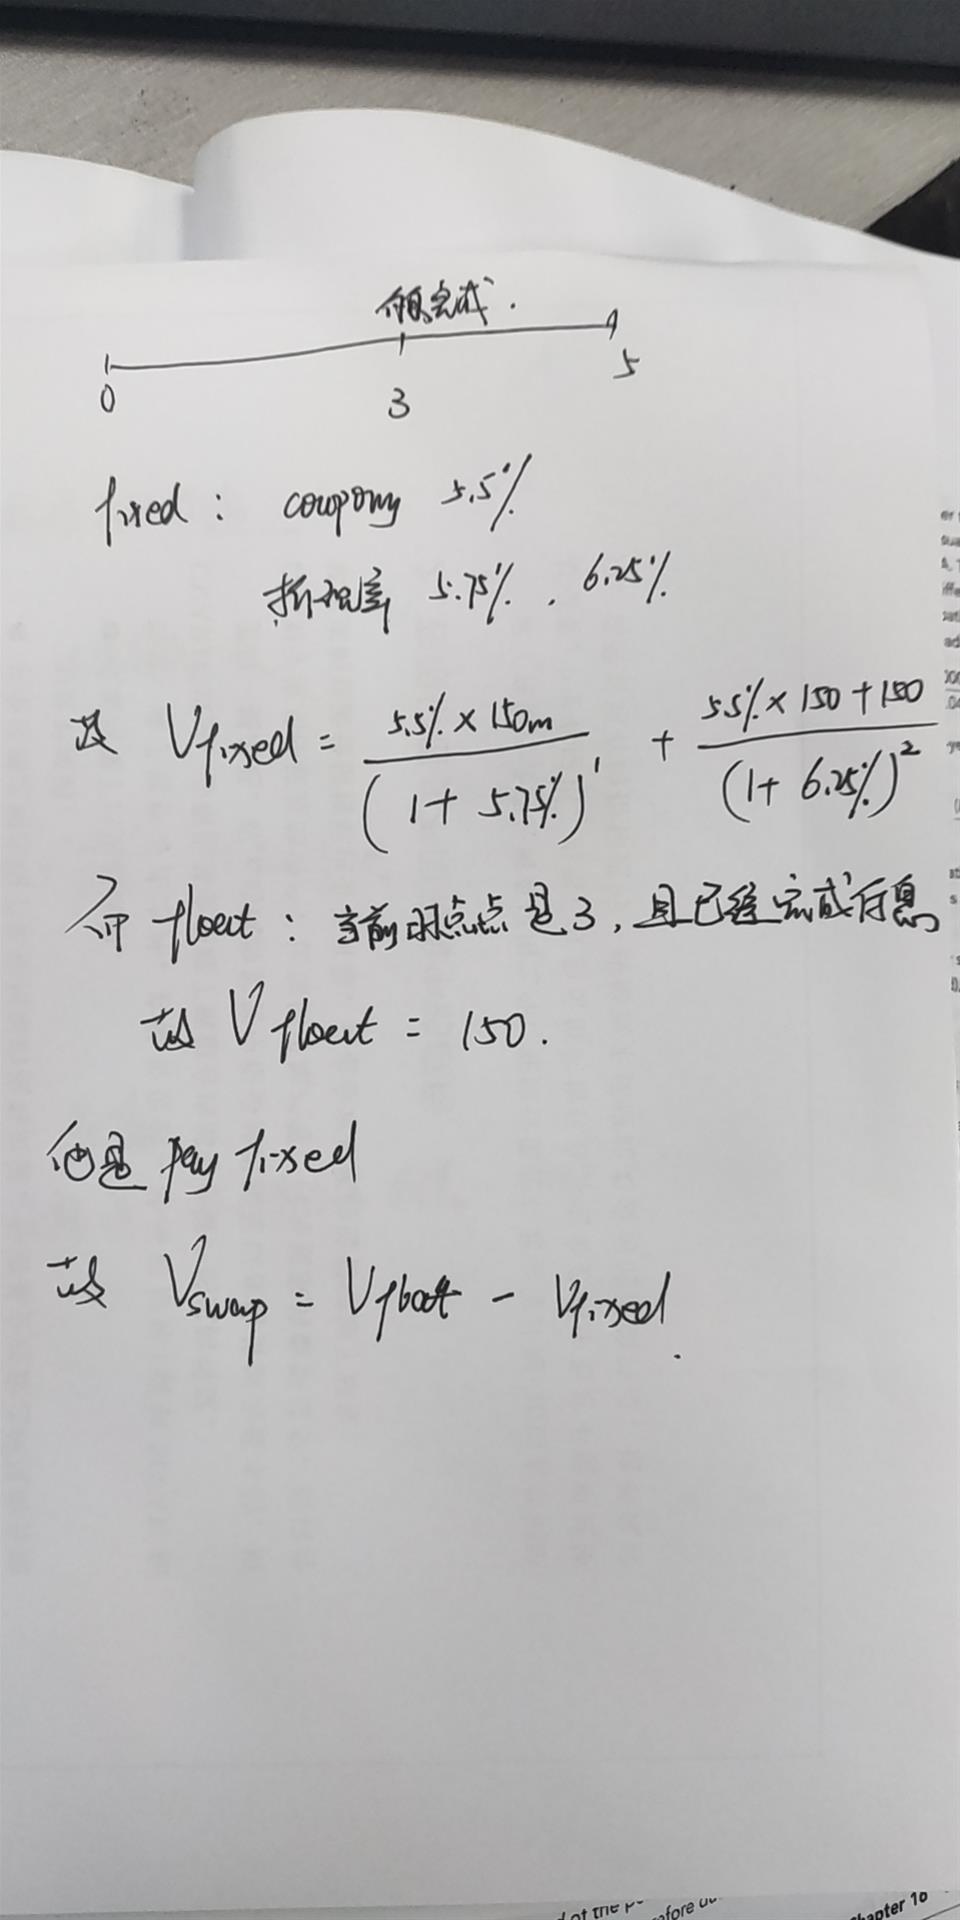 付息完成.
0 3 5
fixed: coupong 5.5%
折现率 5.75%. 6.25%
故 Vfixed = 5.5%×150m / (1+5.75%)^1 + 5.5%×150+150 / (1+6.25%)^2
float: 当前时点点是3,且已经完成付息
故 Vfloat = 150.
他是 pay fixed
故 Vswap = Vfloat - Vfixed.
er
diffe
ad
at
s
d of the p
efore
hapter 16